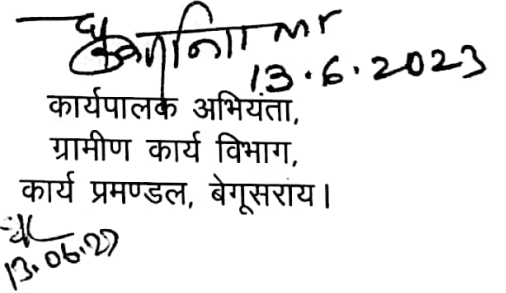 13.6.2023
कार्यपालक अभियंता,
ग्रामीण कार्य विभाग,
कार्य प्रमण्डल, बेगूसराय।
13.06.23